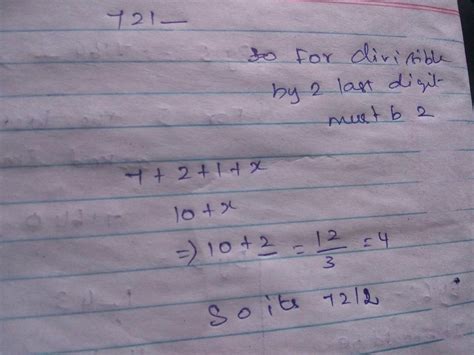 721_
so for divisible
by 2 last digit
must b 2
7+2+1+x
10+x
=) 10+2 = 12/3 = 4
So its 7212